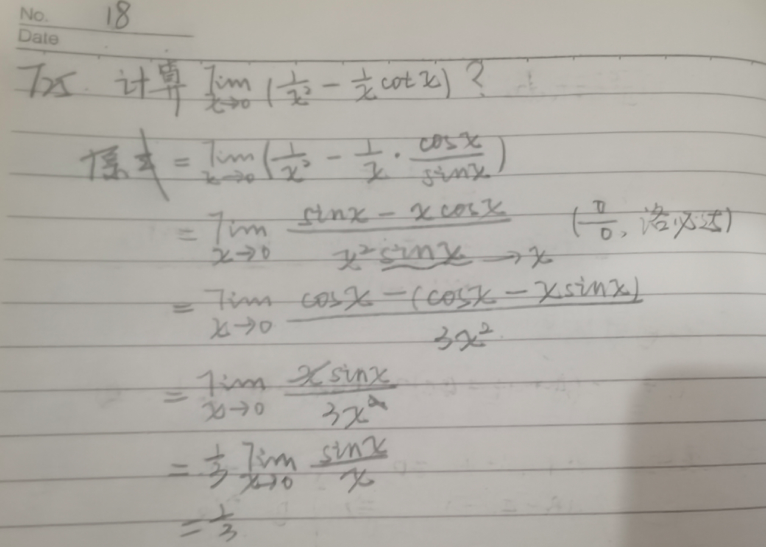 No. 18
Date
T25. 计算 lim x→0 (1/x² - 1/x cotx)?
原式 = lim x→0 (1/x² - 1/x · cosx/sinx)
= lim x→0 (sinx - xcosx)/(x² sinx → x) (0/0, 洛必达)
= lim x→0 (cosx - (cosx - xsinx))/(3x²)
= lim x→0 xsinx/3x²
= 1/3 lim x→0 sinx/x
= 1/3